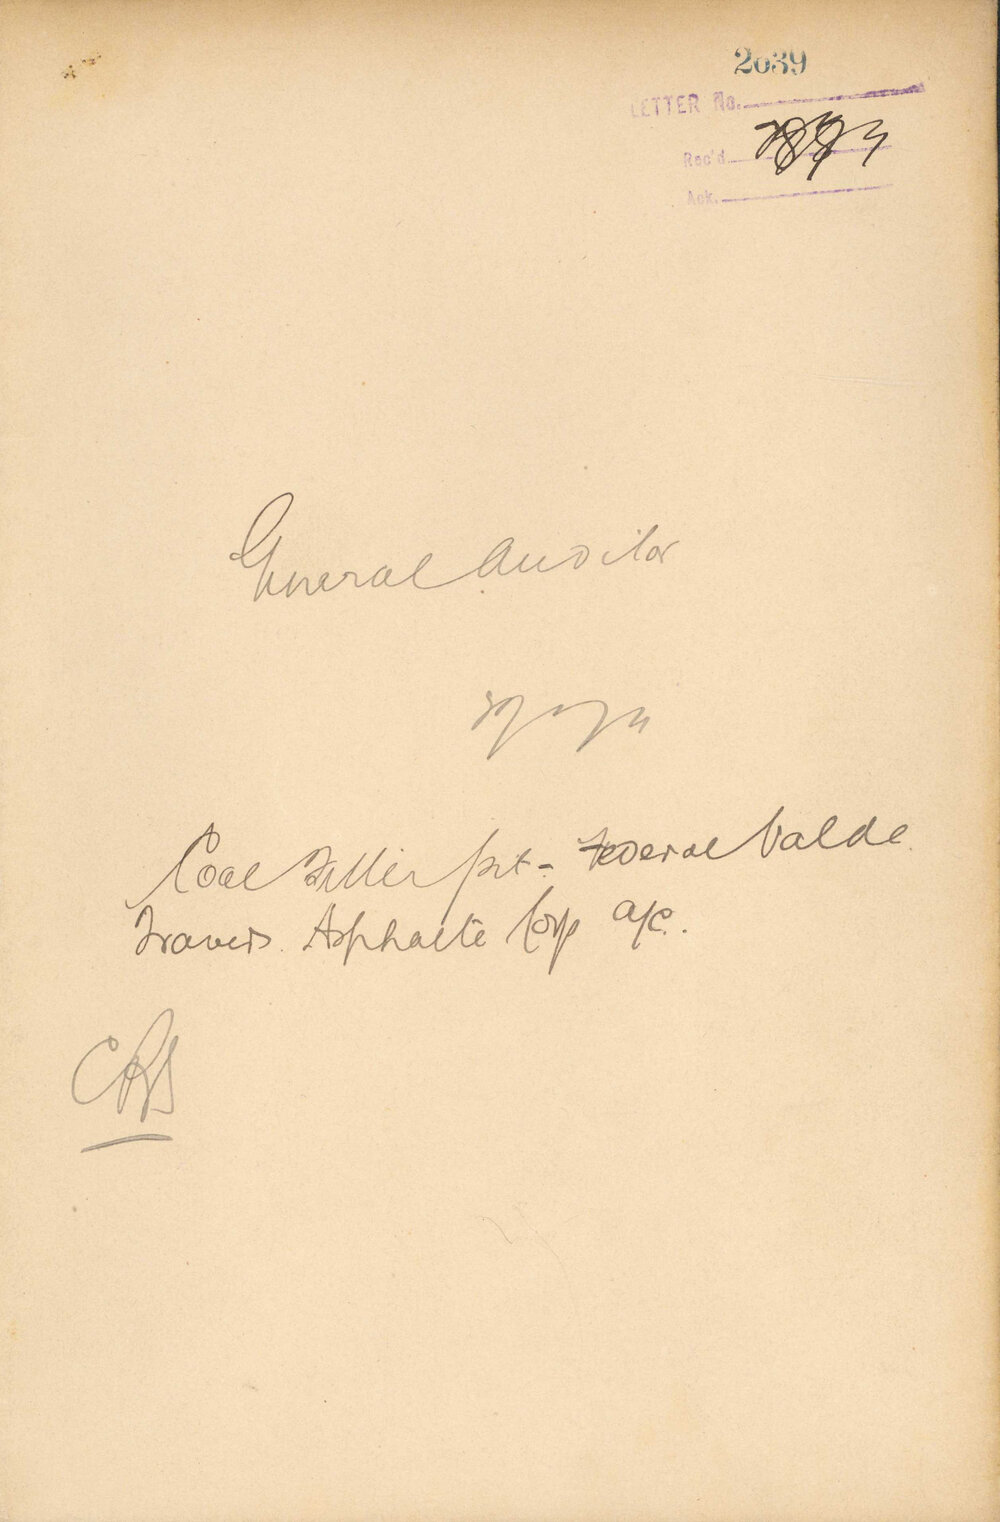 2039
LETTER No.
Rec'd
Ack.
General Auditor
Coal Filler frt - Federal Valde
Travers Asphalte Corp a/c.